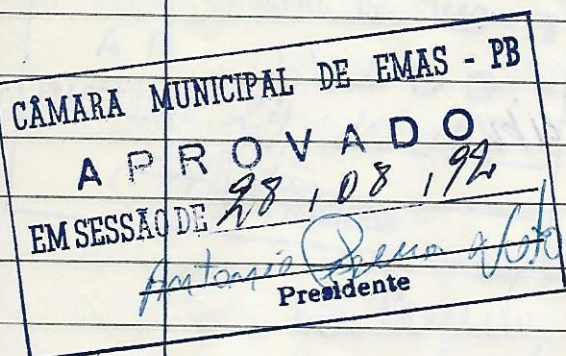 CÂMARA MUNICIPAL DE EMAS - PB
APROVADO
EM SESSÃO DE 28, 08, 92
Antonio
Presidente